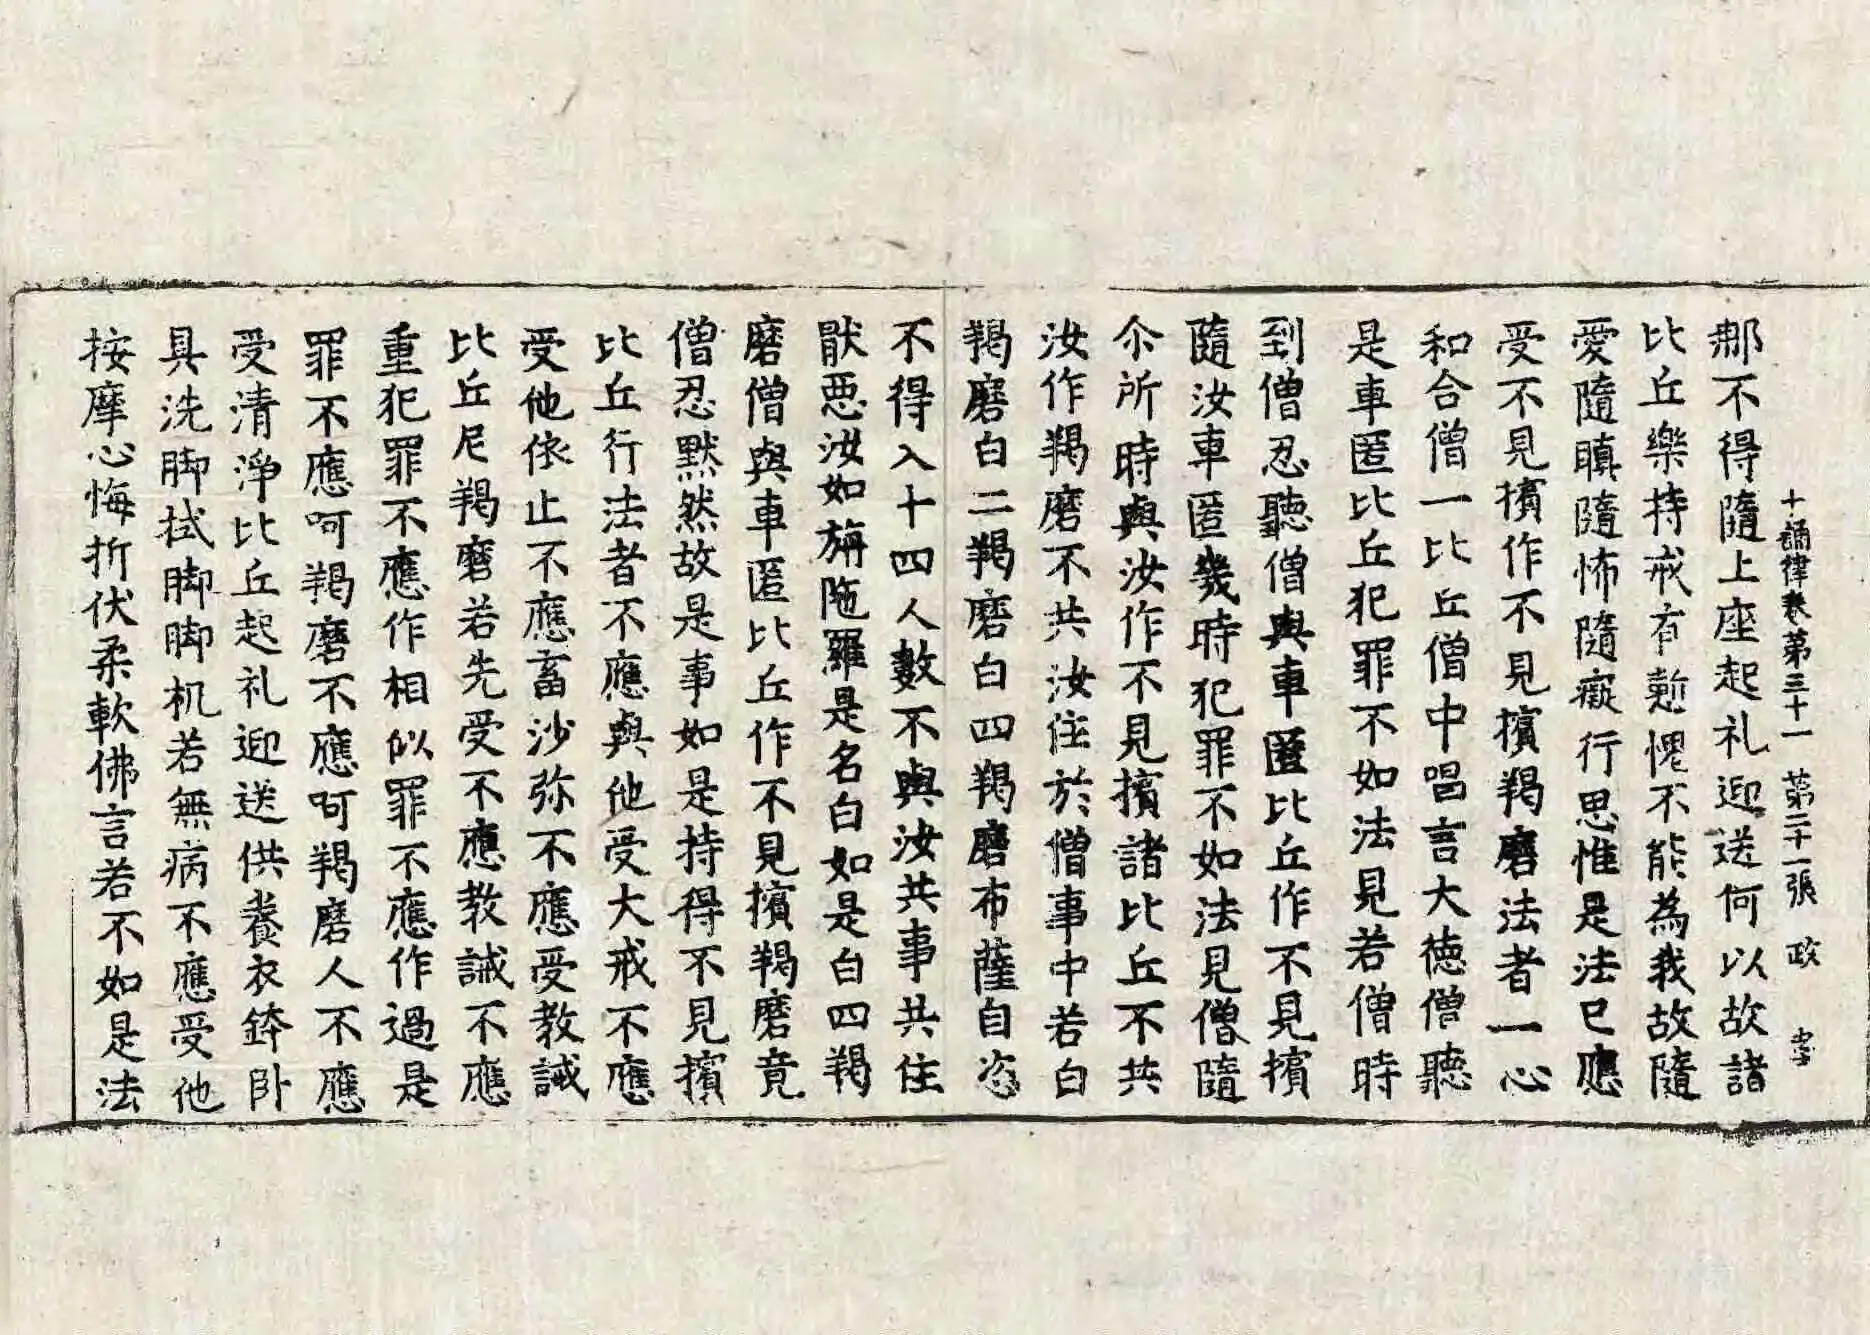 十誦律卷第三十一 第二十一張 政
那不得隨上座起礼迎送何以故諸
比丘樂持戒有慙愧不能為我故隨
愛隨瞋隨怖隨癡行思惟是法已應
受不見擯作不見擯羯磨法者一心
和合僧一比丘僧中唱言大德僧聽
是車匿比丘犯罪不如法見若僧時
到僧忍聽僧與車匿比丘作不見擯
隨汝車匿幾時犯罪不如法見僧隨
尒所時與汝作不見擯諸比丘不共
汝作羯磨不共汝住於僧事中若白
羯磨白二羯磨白四羯磨布薩自恣
不得入十四人數不與汝共事共住
猒惡汝如旃陁羅是名白如是白四羯
磨僧與車匿比丘作不見擯羯磨竟
僧忍默然故是事如是持得不見擯
比丘行法者不應與他受大戒不應
受他依止不應畜沙弥不應受教誡
比丘尼羯磨若先受不應教誡不應
重犯罪不應作相似罪不應作過是
罪不應呵羯磨不應呵羯磨人不應
受清淨比丘起礼迎送供養衣鉢卧
具洗脚拭脚脚机若無病不應受他
按摩心悔折伏柔軟佛言若不如是法